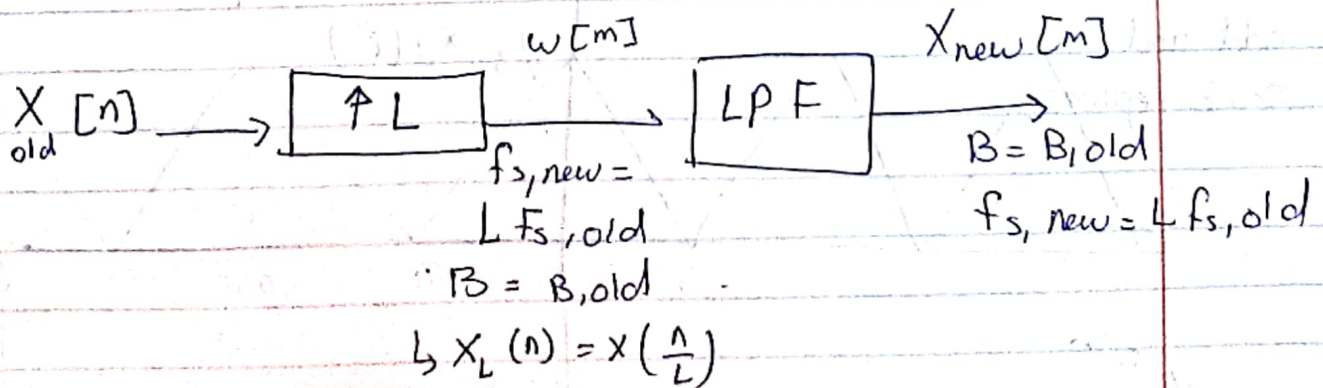 w[m]
X_new [m]
X_old [n]
↑ L
LPF
fs, new =
L Fs, old
B = B, old
↳ X_L (n) = x(n/L)
B = B, old
fs, new = L fs, old